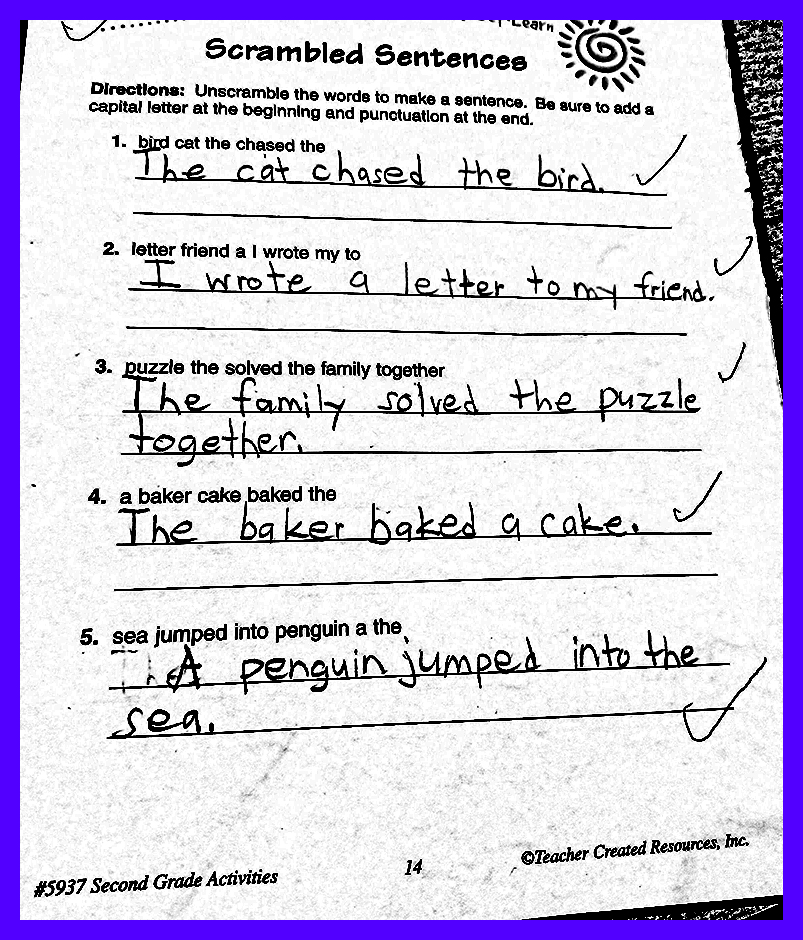 Learn
Scrambled Sentences
Directions: Unscramble the words to make a sentence. Be sure to add a
capital letter at the beginning and punctuation at the end.
1. bird cat the chased the
The cat chased the bird.
2. letter friend a I wrote my to
I wrote a letter to my friend.
3. puzzle the solved the family together
The family solved the puzzle
together.
4. a baker cake baked the
The baker baked a cake.
5. sea jumped into penguin a the
A penguin jumped into the
sea.
#5937 Second Grade Activities
14
©Teacher Created Resources, Inc.